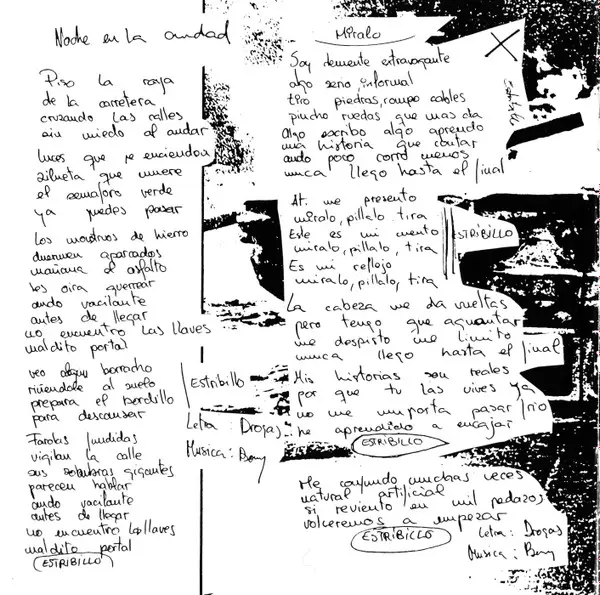 Noche en la ciudad
Piso la raya
de la carretera
cruzando las calles
sin miedo al andar
luces que se encienden
silueta que muere
el semaforo verde
ya puedes pasar
Los monstruos de hierro
duermen aparcados
mañana el asfalto
les oira quemar
ando vacilante
antes de llegar
no encuentro las llaves
maldito portal
veo algun borracho
riñendole al suelo
prepara el bordillo
para descansar
Estribillo
Farolas fundidas
vigilan la calle
sus sombras gigantes
parecen hablar
ando vacilante
antes de llegar
no encuentro las llaves
maldito portal
ESTRIBILLO
Letra: Drogas
Musica: Bony
Miralo
Soy demente extravagante
algo serio, informal
tiro piedras, rompo cables
pincho ruedas que mas da
Algo escribo algo aprendo
una historia que contar
ando poco corro menos
nunca llego hasta el final
Estribillo
At. me presento
miralo, pillalo, tira
Este es mi mento
miralo, pillalo, tira
Es mi reflejo
miralo, pillalo, tira
ESTRIBILLO
La cabeza me da vueltas
pero tengo que aguantar
me despisto me limito
nunca llego hasta el final
Mis historias son reales
por que tu las vives ya
no me importa pasar frio
he aprendido a encajar
ESTRIBILLO
He cayendo muchas veces
natural artificial
si reviento en mil pedazos
volveremos a empezar
ESTRIBILLO
Letra: Drogas
Musica: Bony